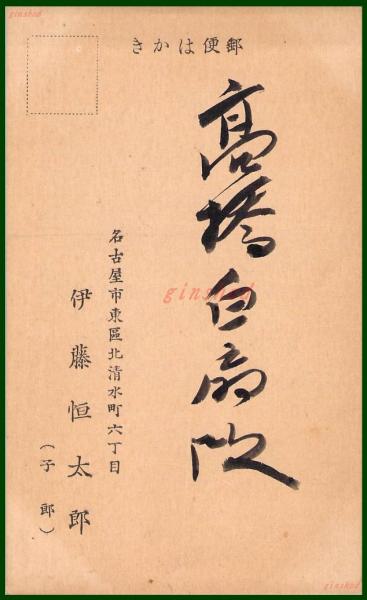 郵便はかき
高橋白扇殿
名古屋市東區北清水町六丁目
伊藤恒太郎
(子郎)
ginshod
ginshod
ginshod